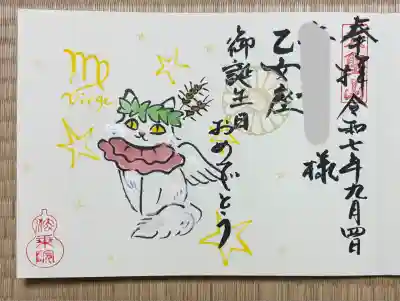 奉拝 令和七年九月四日
様
乙女座
御誕生日
おめでとう
♍
Virgo